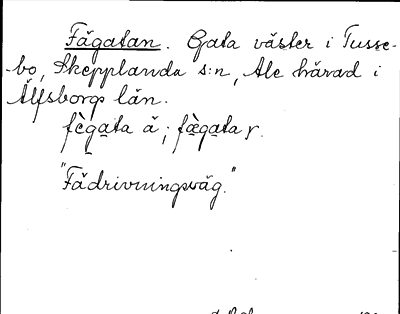 Fägatan. Gata väster i Tusse-
bo, Skepplanda s:n, Ale härad i
Älfsborgs län.
fègata ä; fægata y.
"Fädrivningsväg."